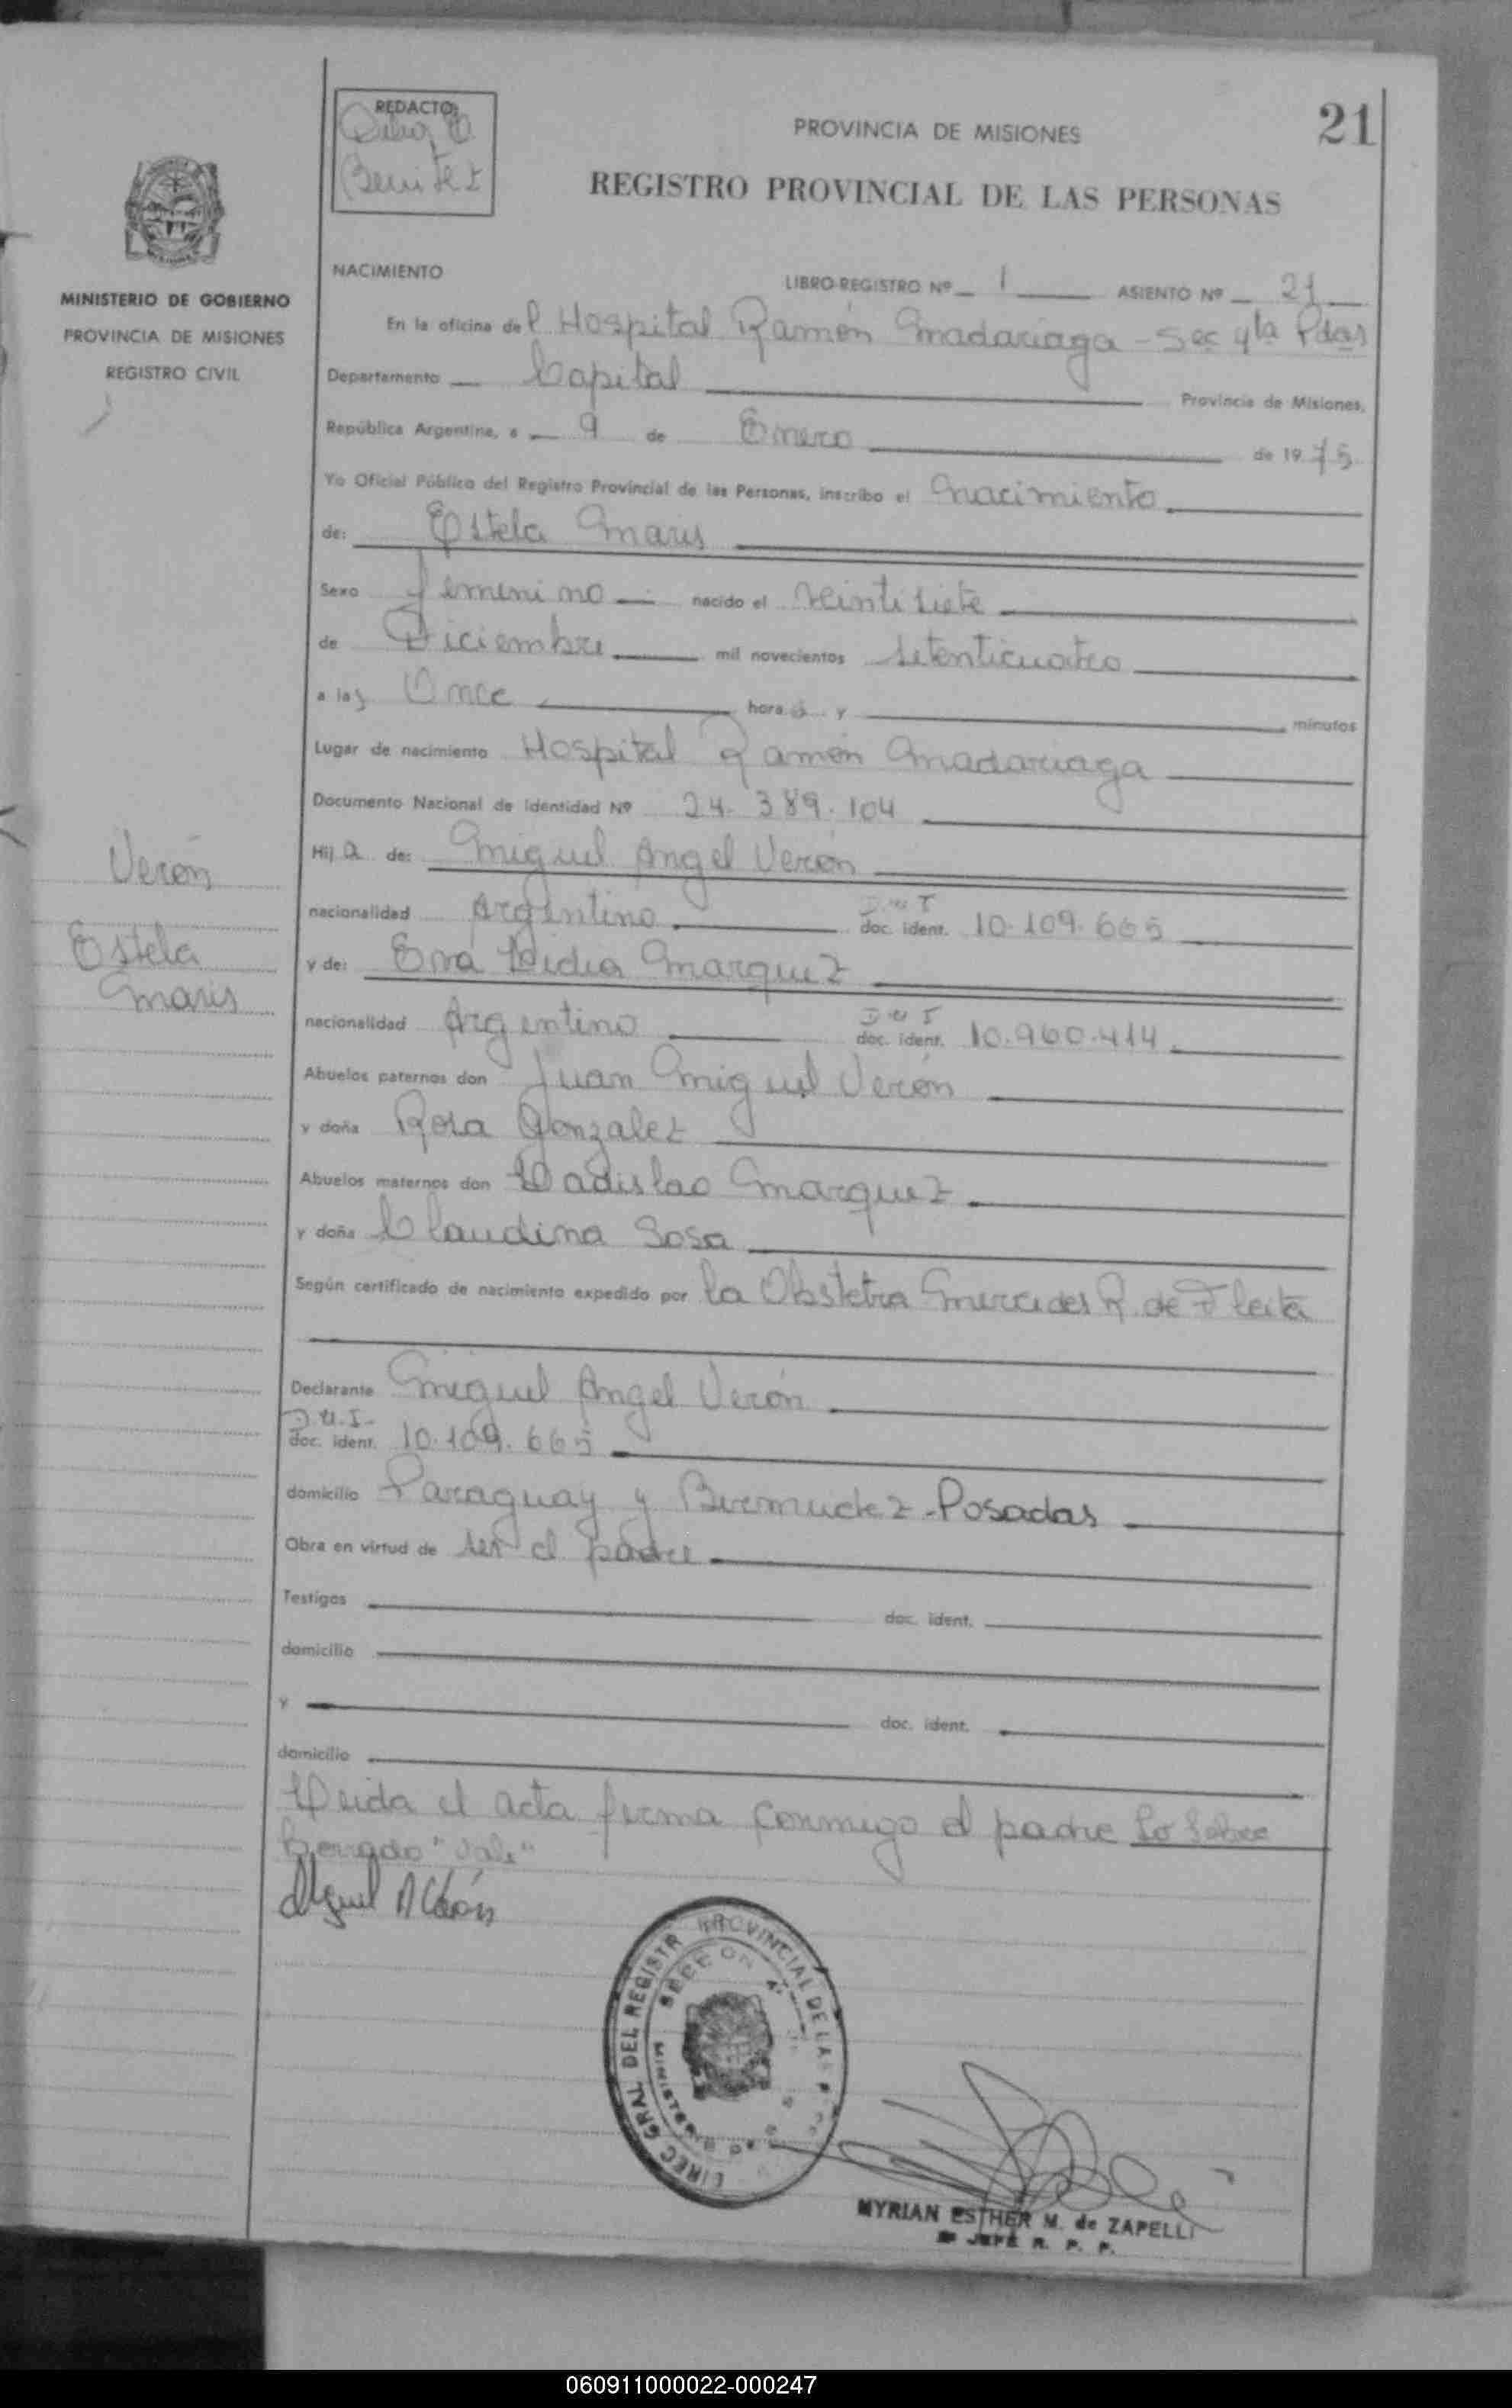 21
REDACTO:
Benitez
PROVINCIA DE MISIONES
REGISTRO PROVINCIAL DE LAS PERSONAS
MINISTERIO DE GOBIERNO
PROVINCIA DE MISIONES
REGISTRO CIVIL
NACIMIENTO
LIBRO-REGISTRO Nº 1 ASIENTO Nº 21
En la oficina del Hospital Ramón Madariaga - Sec 4ta Pdas
Departamento Capital Provincia de Misiones,
República Argentina, a 9 de Enero de 1975
Yo Oficial Público del Registro Provincial de las Personas, inscribo el nacimiento
de: Estela Maris
Sexo femenino nacido el veintisiete
de Diciembre mil novecientos setenticuatro
a las Once horas y minutos
Lugar de nacimiento Hospital Ramón Madariaga
Documento Nacional de Identidad Nº 24.389.104
Hija de: Miguel Angel Verón
nacionalidad Argentino D.N.I doc. ident. 10.109.665
y de: Ema Lidia Marquez
nacionalidad Argentino D N I doc. ident. 10.960.414
Abuelos paternos don Juan Miguel Verón
y doña Rosa Gonzalez
Abuelos maternos don Ladislao Marquez
y doña Claudina Sosa
Según certificado de nacimiento expedido por la Obstetra Mercedes R. de Fleita
Declarante Miguel Angel Verón
D.N.I. doc. ident. 10.109.665
domicilio Paraguay y Bermudez - Posadas
Obra en virtud de ser el padre
Testigos doc. ident.
domicilio
y doc. ident.
domicilio
Leida el acta firma conmigo el padre Lo sobre
borrado "vale"
Miguel A Verón
Verón
Estela
Maris
DIREC GRAL DEL REGISTR PROVINCIAL DE LAS
SECCION 4
MINISTERIO
MYRIAN ESTHER M. de ZAPELLI
JEFE R. P. P.
060911000022-000247